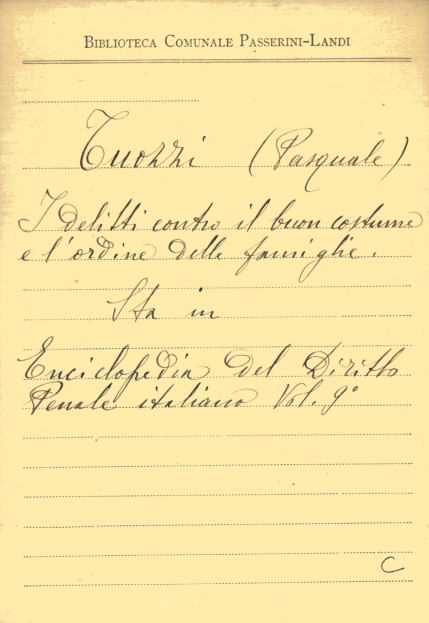 BIBLIOTECA COMUNALE PASSERINI-LANDI
Tuozzi (Pasquale)
I delitti contro il buon costume
e l'ordine delle famiglie.
Sta in
Enciclopedia del Diritto
Penale italiano Vol. 9°
C